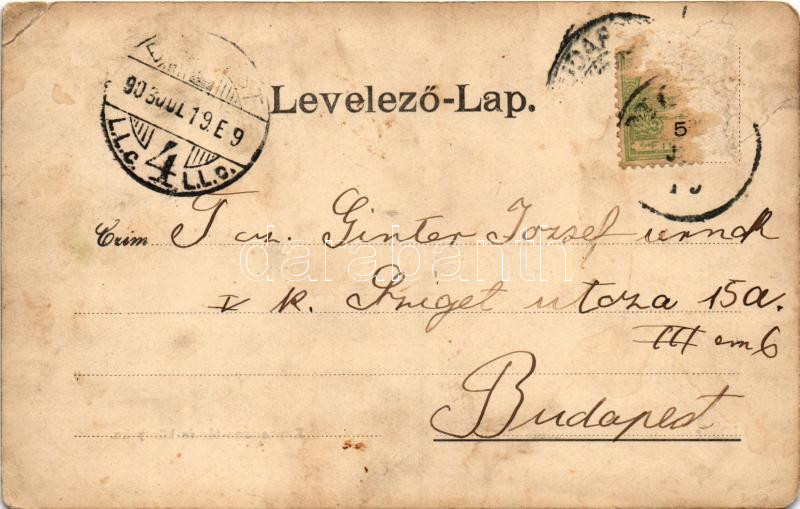 903 JUL 19. E 9
L.L.C. 4 L.L.C.
Levelező-Lap.
5
Czim T cz. Ginter Jozsef urnak
V k. Sziget utcza 15a.
III em 6
Budapest
darabanth